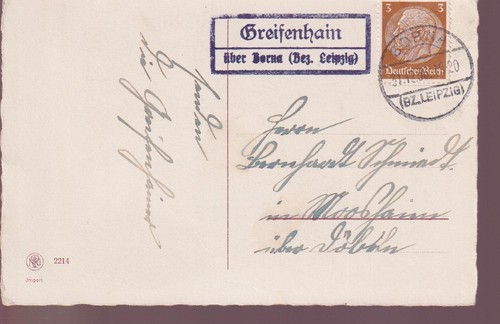 Greifenhain
über Borna (Bez. Leipzig)
3 3
Deutsches Reich
BORNA
20
(BZ. LEIPZIG)
senden
die Greifenhainer
Herrn
Bernhardt Schmidt.
in Moosheim
über Döbeln
2214
Import.